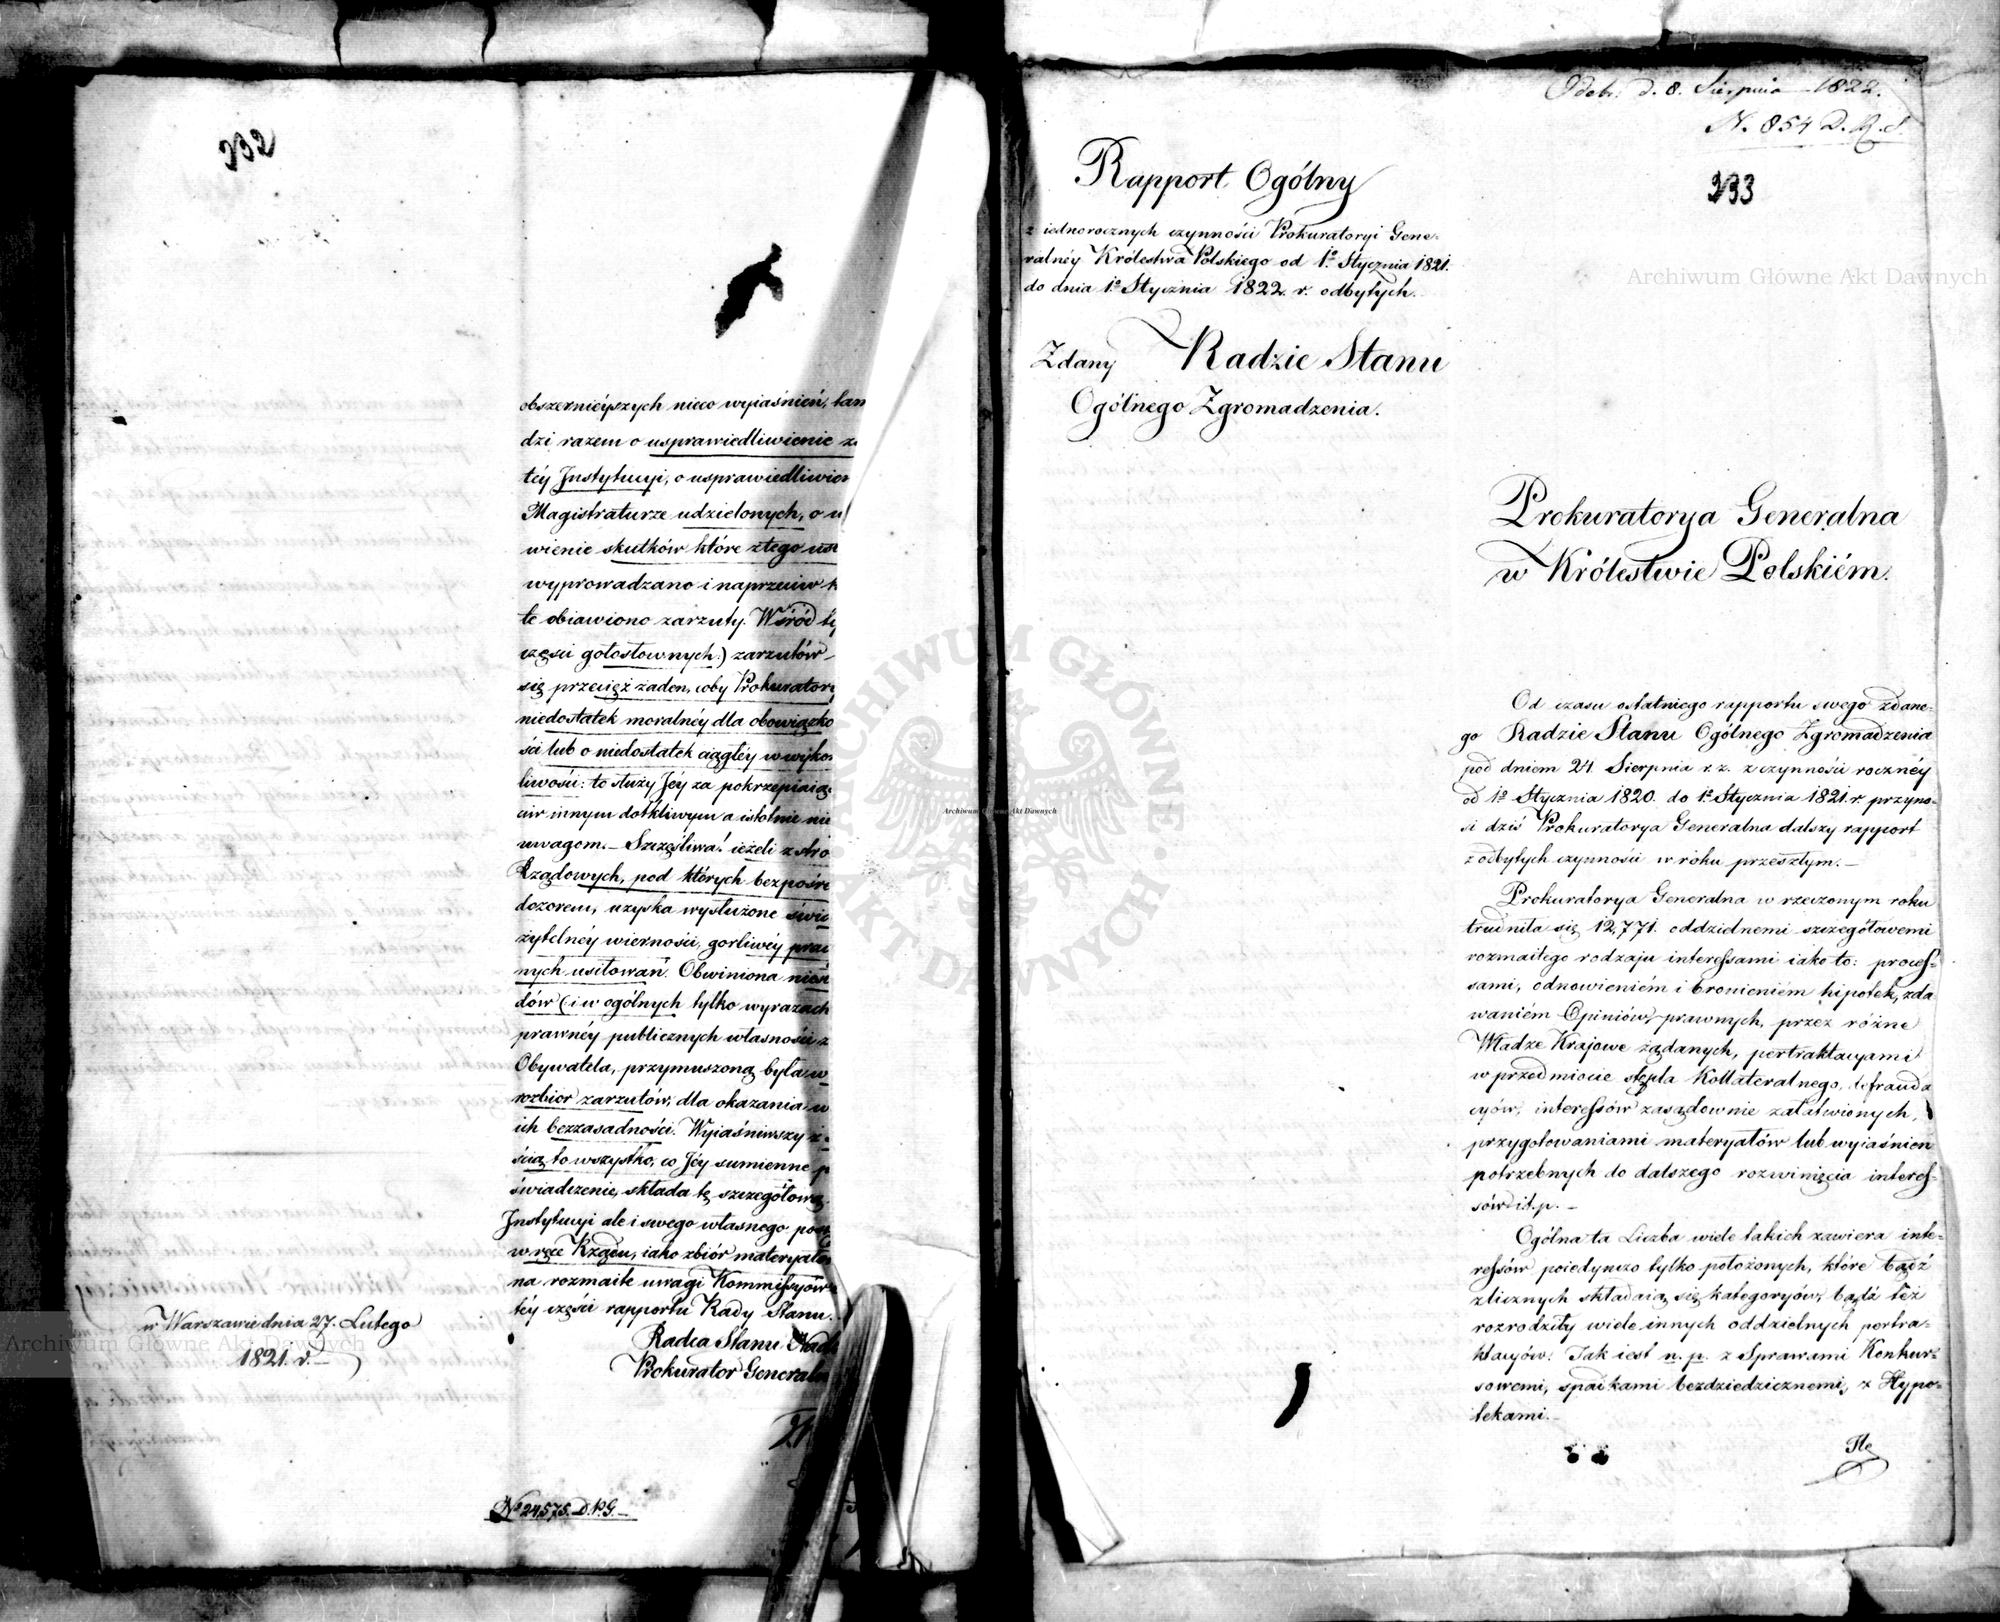 232
obszernieyszych nieco wyiaśnień,
dzi razem o usprawiedliwienie
téy Instytucyi, o usprawiedliwien
Magistraturze udzielonych, o u
wienie skutków które z tego
wyprowadzano i naprzeciw
te obiawiono zarzuty. Wśród
części gołosłownych) zarzutów
się przecięż żaden, coby Prokuratory
niedostatek moralnéy dla obowiązko
ści lub o niedostatek ciągłéy w wykon
liwości: to służy Jéy za pokrzepiaią
ciw innym dotkliwym a istotnie nie
uwagom. – Szczęśliwa! ieżeli z stro
Rządowych, pod których bezpośre
dozorem, uzyska wysłużone świa
żytelnéy wierności, gorliwéy prac
nych usiłowań. Obwiniona
dów (i w ogólnych tylko wyrazach
prawnéy publicznych własności z
Obywatela, przymuszoną była w
rozbiór zarzutów, dla okazania
ich bezzasadności. Wyiaśniwszy
ścią to wszystko, co Jéy sumienne p
świadczenie, składa tę szczegółową
Instytucyi ale i swego własnego
w ręce Rządu, iako zbiór materyałów
na rozmaite uwagi Kommissyów
téy części rapportu Rady Stanu.
Radca Stanu Nad
Prokurator General
w Warszawie dnia 27. Lutego
1821. r. –
No 24,575. D.P.G. –
Odeb. d. 8. Sierpnia 1822.
N. 854 D.R.S.
233
Rapport Ogólny
z iednorocznych czynności Prokuratoryi Gene-
ralnéy Królestwa Polskiego od 1o Stycznia 1821.
do dnia 1o Stycznia 1822. r. odbytych.
Zdany Radzie Stanu
Ogólnego Zgromadzenia.
Prokuratorya Generalna
w Królestwie Polskiém.
Od czasu ostatniego rapportu swego zdane-
go Radzie Stanu Ogólnego Zgromadzenia
pod dniem 24. Sierpnia r. z. z czynności rocznéy
od 1o Stycznia 1820. do 1o Stycznia 1821. r. przyno-
si dziś Prokuratorya Generalna dalszy rapport
z odbytych czynności w roku przeszłym. –
Prokuratorya Generalna w rzeczonym roku
trudniła się 12,771. oddzielnemi szczegółowemi
rozmaitego rodzaju interessami iako to: proces-
sami, odnowieniém i bronieniém hipotek, zda-
waniém Opiniów prawnych, przez różne
Władze Krajowe żądanych, pertraktacyami
w przedmiocie stępla Kollateralnego, defrauda
cyów, interessów zasądownie załatwionych,
przygotowaniami materyałów lub wyiaśnien
potrzebnych do dalszego rozwinięcia interes-
sów it.p. –
Ogólna ta Liczba wiele takich zawiera inte-
ressów poiedynczo tylko położonych, które bądź
z licznych składaią się kategoryów, bądź też
rozrodziły wiele innych oddzielnych pertra-
ktacyów. Jak iest n. p. z Sprawami Konkur-
sowemi, spadkami bezdziedzicznemi, z Hypo-
tekami. –
Ile
Archiwum Główne Akt Dawnych
Archiwum Główne Akt Dawnych
Archiwum Główne Akt Dawnych
ARCHIWUM GŁÓWNE AKT DAWNYCH